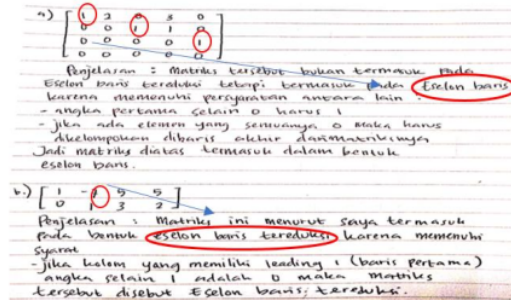 a) [ 1 2 0 3 0
0 0 1 1 0
0 0 0 0 1
0 0 0 0 0 ]
Penjelasan : Matriks tersebut bukan termasuk pada
Eselon baris tereduksi tetapi termasuk pada Eselon baris
karena memenuhi persyaratan antara lain
- angka pertama selain 0 harus 1
- jika ada elemen yang semuanya 0 maka harus
dikelompokan dibaris akhir dari matriksnya
Jadi matriks diatas termasuk dalam bentuk
eselon baris.
b.) [ 1 -1 5 5
0 1 3 2 ]
Penjelasan : Matriks ini menurut saya termasuk
Pada bentuk eselon baris tereduksi karena memenuhi
syarat
- jika kolom yang memiliki leading 1 (baris pertama)
angka selain 1 adalah 0 maka matriks
tersebut disebut Eselon baris tereduksi.